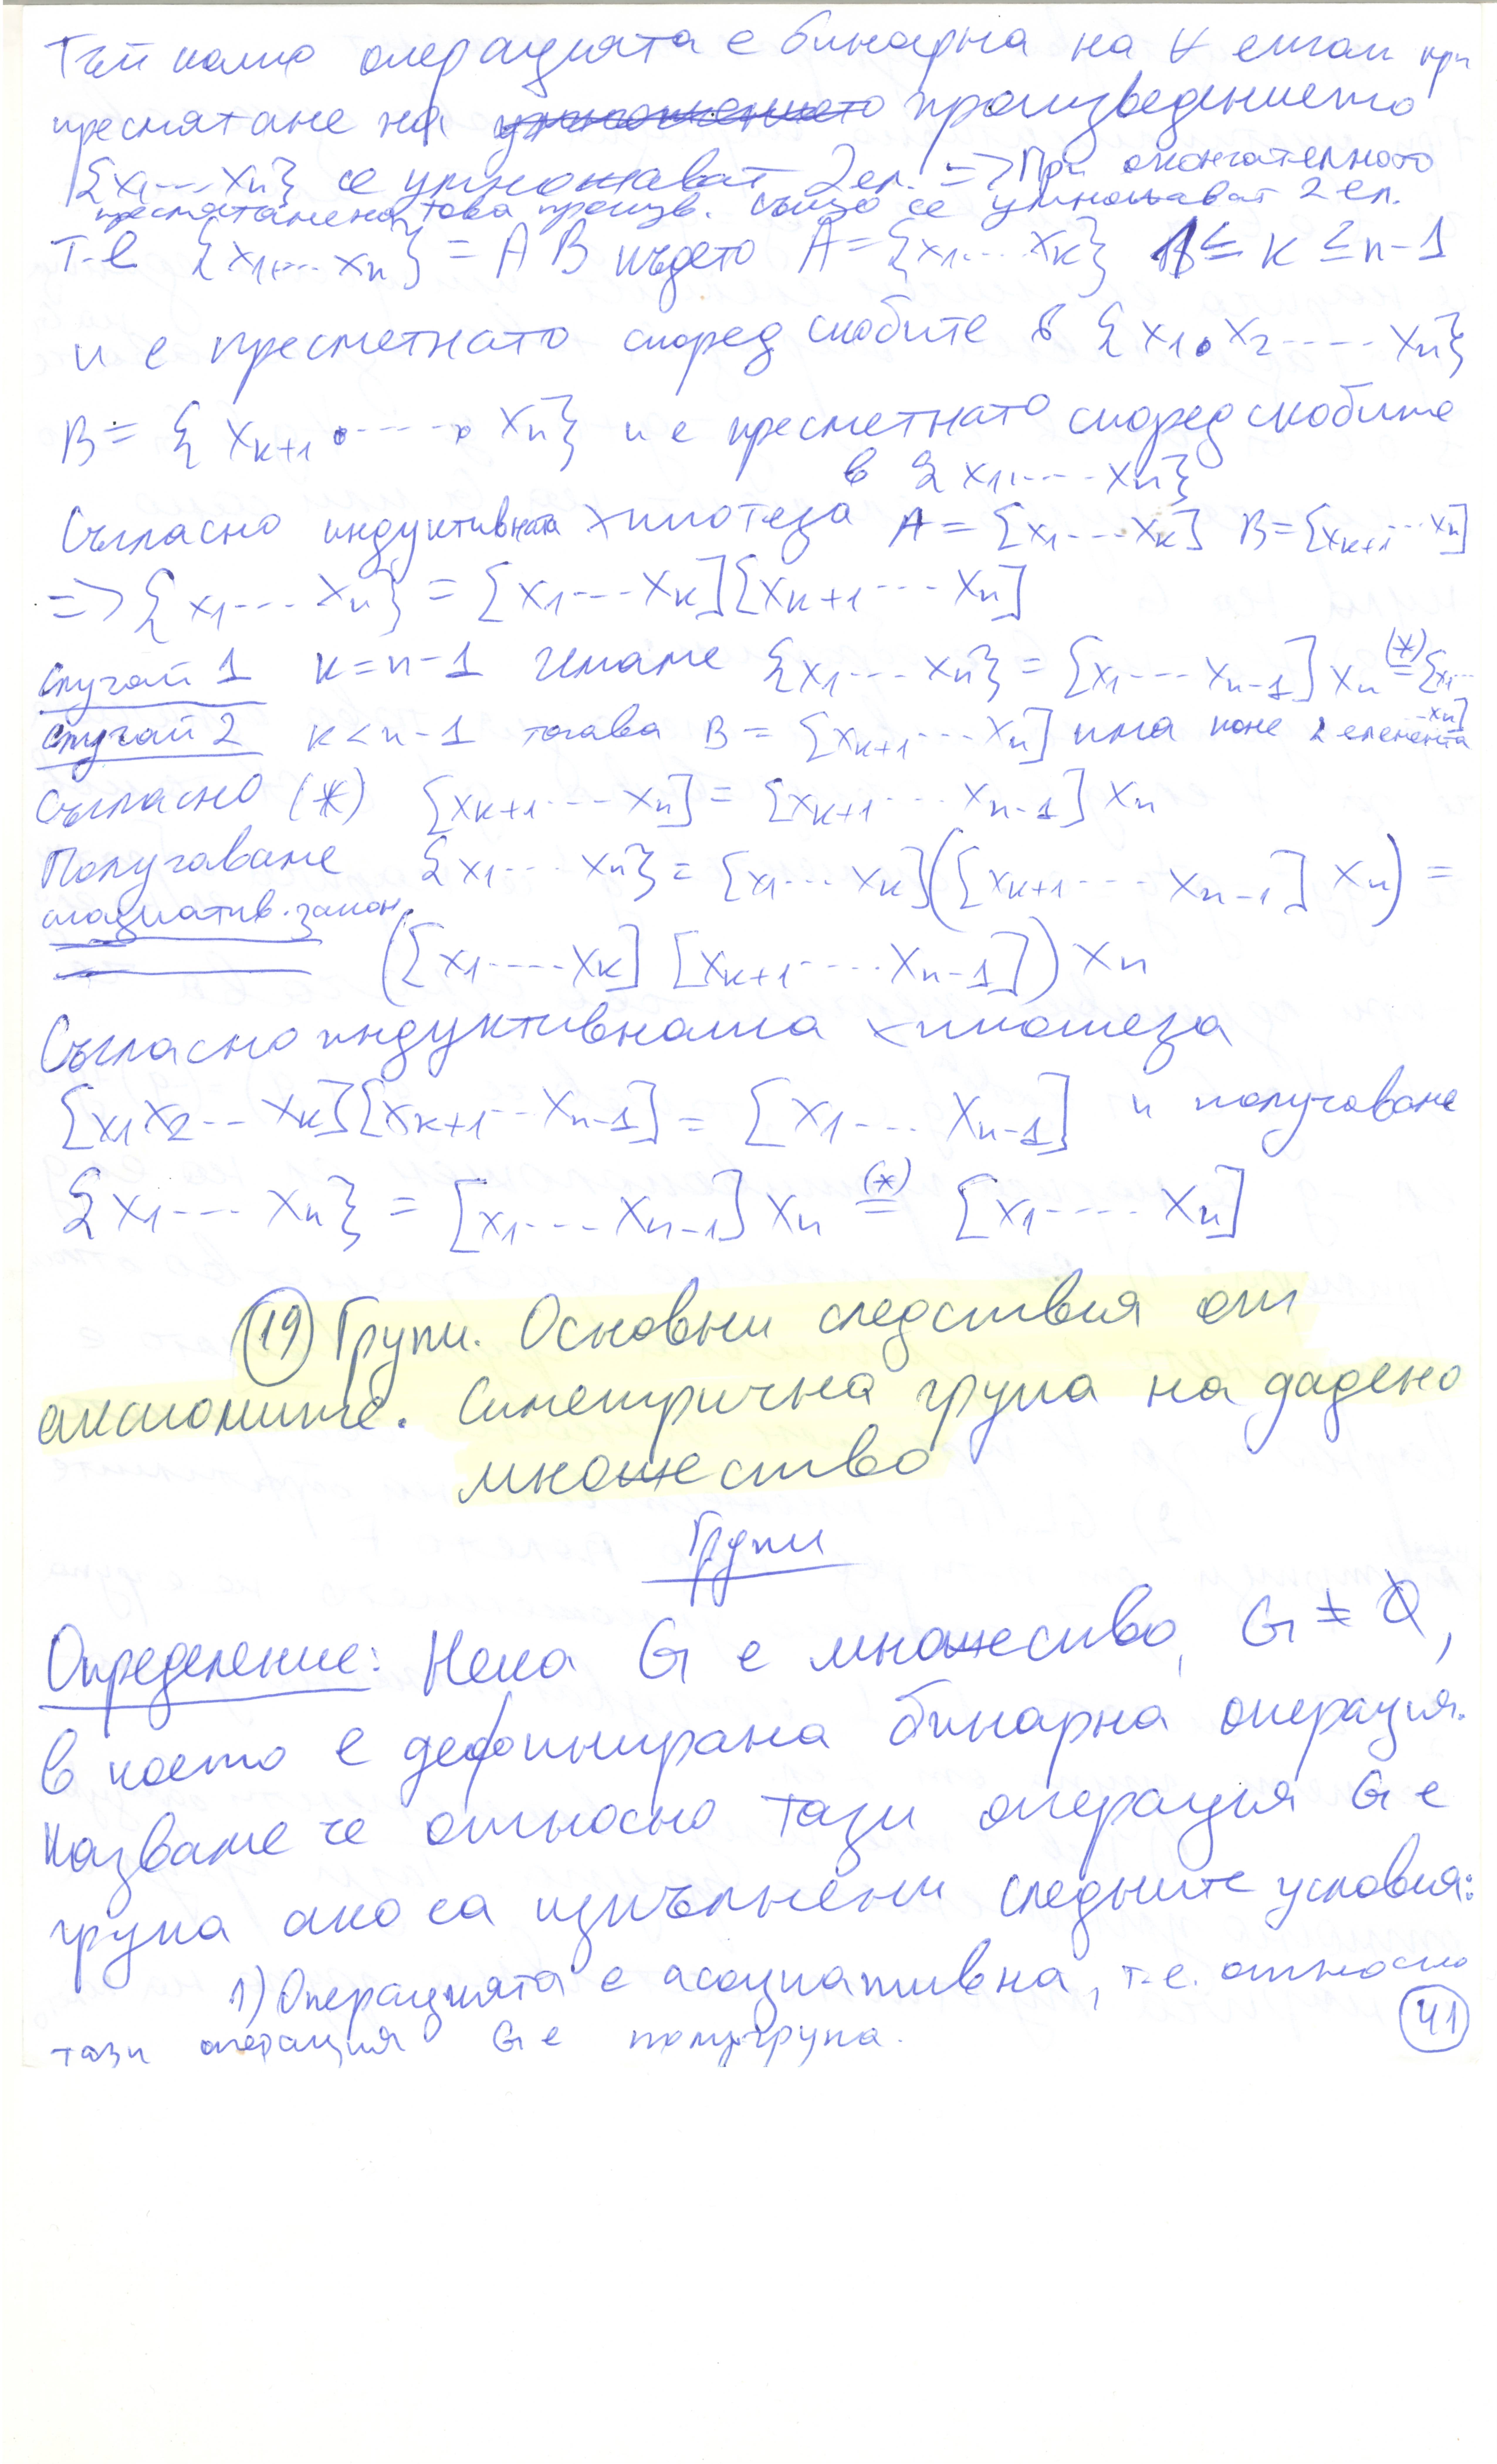 Тъй като операцията е бинарна на ∀ етап при
пресмятане на ~~умножението~~ произведението
{x₁...xₙ} се умножават 2 ел. => При окончателното
пресмятане на това произв. също се умножават 2 ел.
Т.е {x₁,...xₙ} = A B където A = {x₁...xₖ} 1 ≤ k ≤ n-1
и е пресметнато според скобите в {x₁.x₂.....xₙ}
B = {xₖ₊₁.....xₙ} и е пресметнато според скобите
в {x₁....xₙ}
Съгласно индуктивната хипотеза A = [x₁...xₖ] B = [xₖ₊₁...xₙ]
=> {x₁...xₙ} = [x₁...xₖ][xₖ₊₁...xₙ]
Случай 1 k = n-1 Имаме {x₁...xₙ} = [x₁...xₙ₋₁] xₙ (*)= [x₁...xₙ]
Случай 2 k < n-1 тогава B = [xₖ₊₁...xₙ] има поне 2 елемента
Съгласно (*) [xₖ₊₁...xₙ] = [xₖ₊₁...xₙ₋₁] xₙ
Получаваме {x₁...xₙ} = [x₁...xₖ]([xₖ₊₁...xₙ₋₁] xₙ) =
асоциатив. закон.
([x₁....xₖ] [xₖ₊₁....xₙ₋₁]) xₙ
Съгласно индуктивната хипотеза
[x₁x₂...xₖ][xₖ₊₁...xₙ₋₁] = [x₁...xₙ₋₁] и получаваме
{x₁...xₙ} = [x₁...xₙ₋₁] xₙ (*)= [x₁....xₙ]
(19) Групи. Основни следствия от
аксиомите. Симетрична група на дадено
множество
Групи
Определение: Нека G е множество, G ≠ Ø,
в което е дефинирана бинарна операция.
Казваме че относно тази операция G е
група ако са изпълнени следните условия:
1) Операцията е асоциативна, т.е. относно
тази операция G е полугрупа.
41